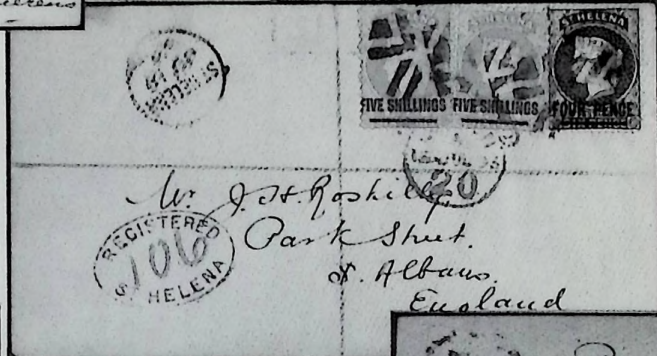 ST HELENA
FIVE SHILLINGS FIVE SHILLINGS FOUR PENCE
ST HELENA
20
Mr J. H. Roskilly
Park Street.
St. Albans.
England
REGISTERED
106
ST HELENA